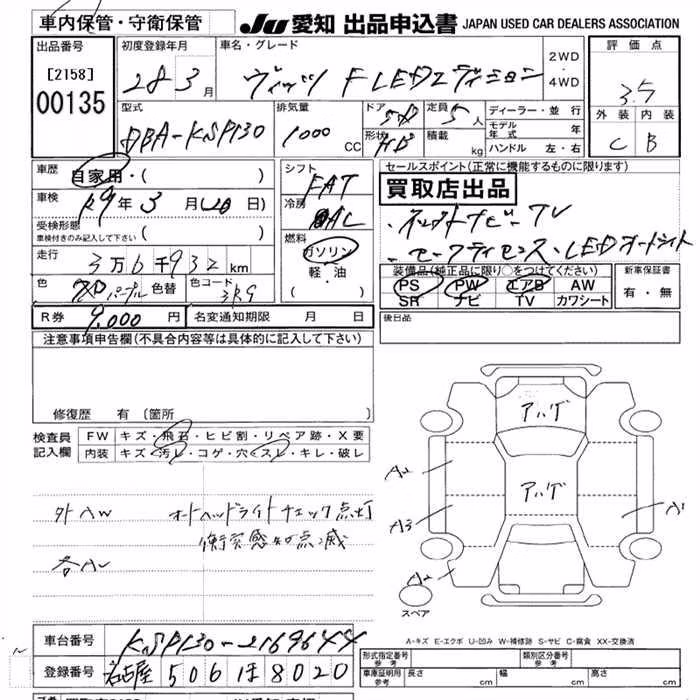 車内保管・守衛保管 JU 愛知 出品申込書 JAPAN USED CAR DEALERS ASSOCIATION
出品番号 初度登録年月 車名・グレード 2WD・4WD 評価点
[2158] 28 3月 ヴィッツ F LEDエディション 3.5
00135
型式 排気量 ドア 定員 ディーラー・並行 外装 内装
DBA-KSP130 1000 CC 5D 5人 モデル年式 年 C B
形状 HB 積載 kg ハンドル 左・右
車歴 自家用・( ) シフト FAT セールスポイント(正常に機能するものに限ります)
買取店出品
車検 R9年3月 日) 冷房 AC ・ネットナビ・TV
受検形態 車検付きのみ記入して下さい ( ) 燃料 ガソリン・軽油 ( ) ・セーフティセンス・LEDオートライト
走行 3万6千932km 装備品(純正品に限り○をつけてください) 新車保証書
色 パープル 色替 色コード 3R9 PS PW エアB AW 有・無
SR ナビ TV カワシート
R券 9,000円 名変通知期限 月 日 後日品
注意事項申告欄(不具合内容等は具体的に記入して下さい)
修復歴 有 〔箇所 〕
検査員記入欄 FW キズ・飛石・ヒビ割・リペア跡・X要
内装 キズ・汚レ・コゲ・穴・スレ・キレ・破レ
アハゲ
アハゲ
A3
外AW オートヘッドライトチェック点灯
衝突感知点滅
スペア
A-キズ E-エクボ U-凹み W-補修跡 S-サビ C-腐食 XX-交換済
車台番号 KSP130-2169644 形式指定番号 参考 類別区分番号 参考
登録番号 名古屋 506 ほ 8020 車庫証明用 参考 長さ cm 幅 cm 高さ cm